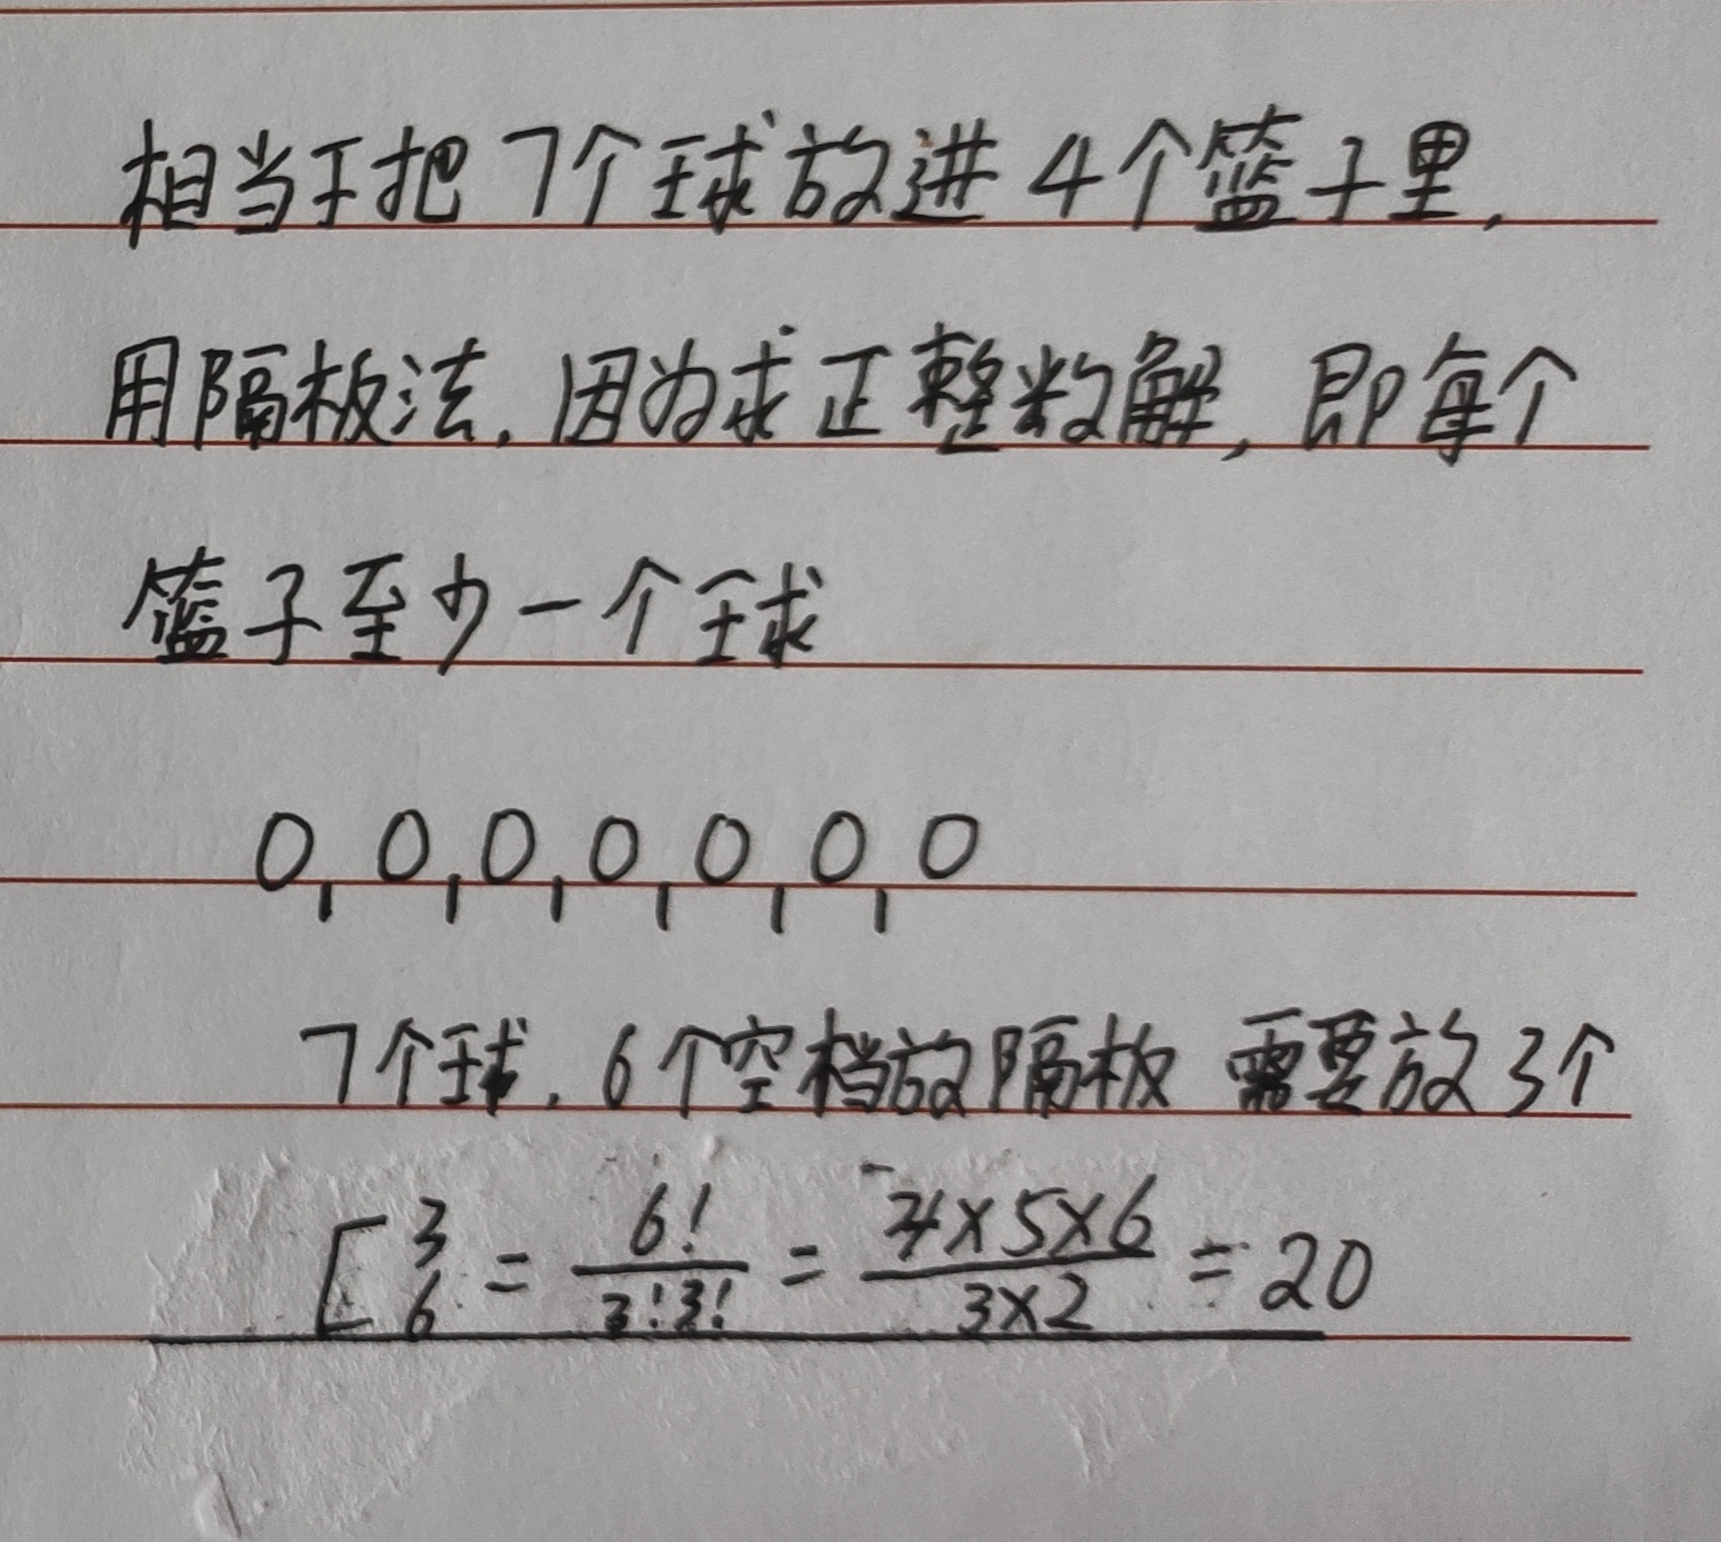 相当于把7个球放进4个篮子里,
用隔板法,因为求正整数解,即每个
篮子至少一个球
0, 0, 0, 0, 0, 0, 0
7个球,6个空档放隔板 需要放3个
C³₆ = 6!/3!3! = 4×5×6/3×2 = 20